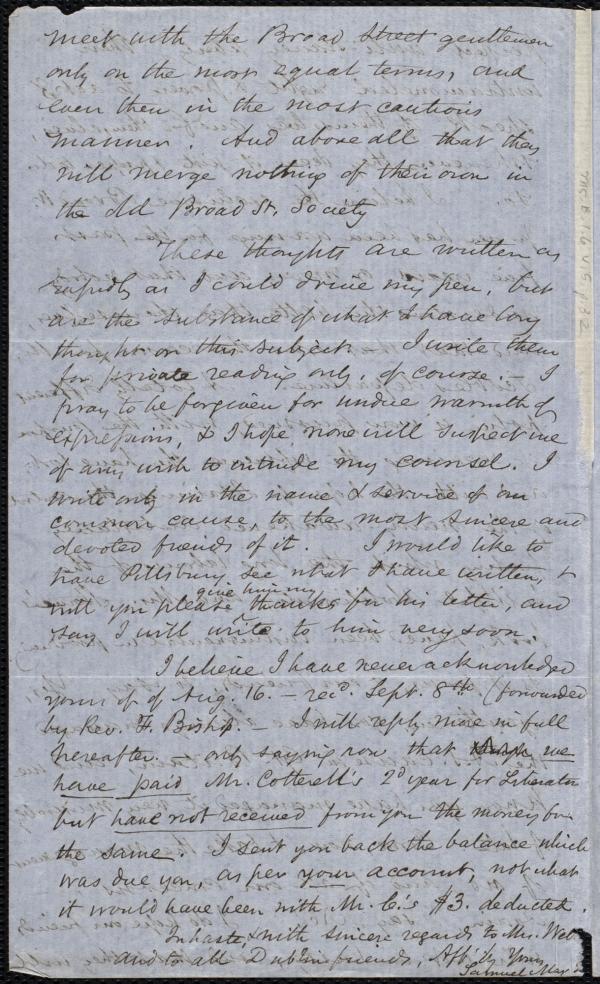 meet with the Broad Street gentlemen
only on the most equal terms, and
even then in the most cautious
manner. And above all that they
will merge nothing of their own in
the old Broad St. Society
These thoughts are written as
rapidly as I could drive my pen, but
are the substance of what I have long
thought on this subject. I write them
for private reading only, of course. I
pray to be forgiven for undue warmth of
expressions, & I hope none will suspect me
of any wish to intrude my counsel. I
write only in the name & service of our
common cause, to the most sincere and
devoted friends of it. I would like to
have Pillsbury see what I have written, &
will you please give him my thanks for his letter, and
say I will write to him very soon.
I believe I have never acknowledged
yours of of Aug. 16. – recd. Sept. 8th. (forwarded
by Rev. F. Bishop. – I will reply more in full
hereafter. – only saying now that we
have paid Mr. Cotterell's 2d year for Liberator
but have not received from you the money for
the same. I sent you back the balance which
was due you, as per your account, not what
it would have been with Mr. C.'s $3. deducted.
In haste, & with sincere regards to Mr. Web
and to all Dublin friends, Aff'ly Yours,
Samuel May